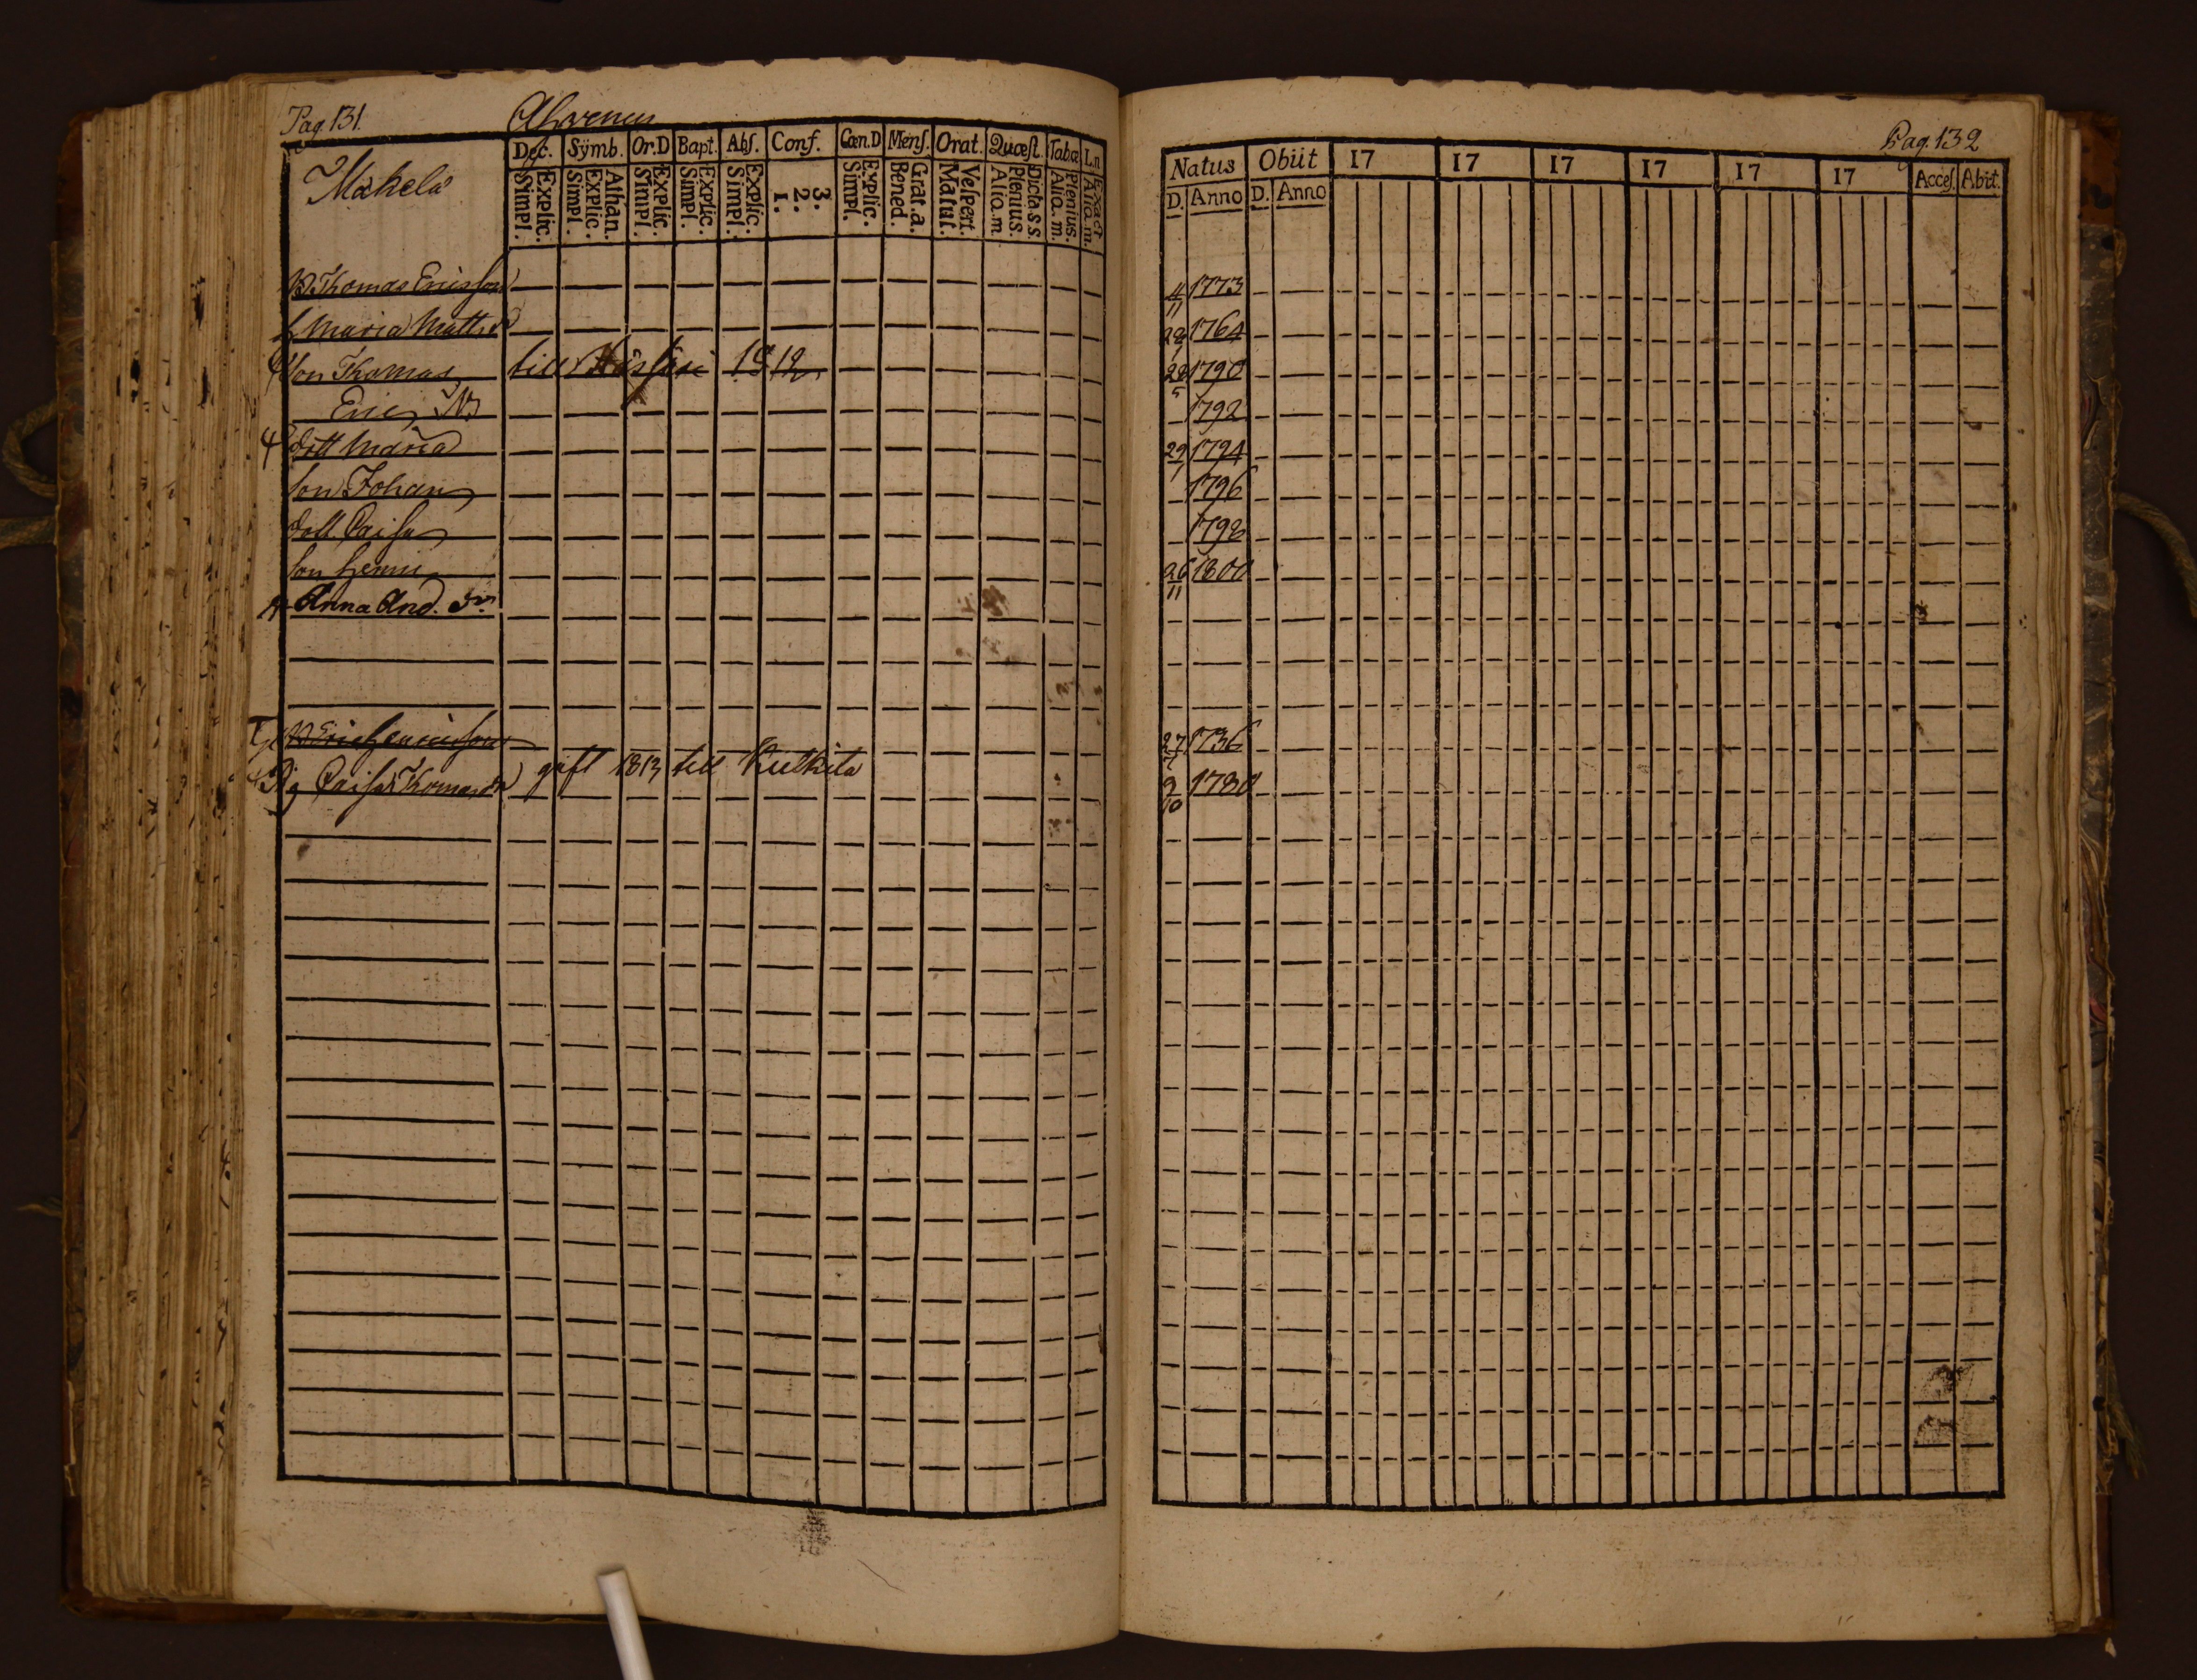 Pag. 131. Ahvenus
Mäkelä Dec. Symb. Or.D Bapt. Abs. Conf. Cœn.D Mens. Orat. Quæst. Tabæ L.n
Simpl. Explic. Simpl. Explic. Athan. Simpl. Explic. Simpl. Explic. Simpl. Explic. 1. 2. 3. Simpl. Explic. Bened. Grat. a. Matut. Vespert. Alio. m. Plenius. Dicta. s s. Alia. m. Plenius. Alia. m. Exact
B Thomas Ericsson
h Maria Matts d
Son Thomas till 1812
Eric
dott Maria
Son Johan
dott. Caisa
Son Henric
Anna And. dr
B Eric Henricsson
Pig Caisa Thomas dr gift 1813 till Kutkila
Pag. 132
Natus Obiit 17 17 17 17 17 17 Acces. Abit.
D. Anno D. Anno
4/11 1773
28/1 1764
28/5 1790
1792
29/1 1794
1796
1798
26/11 1800
27/2 1736
9/10 1780